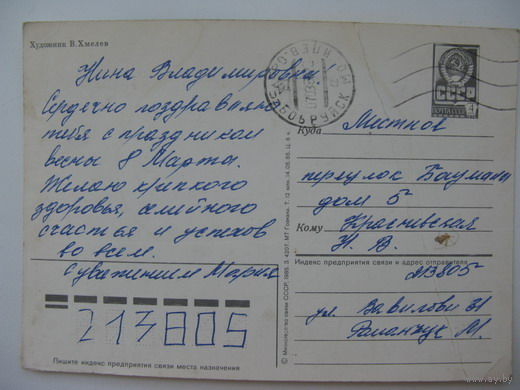 Художник В.Хмелев
Нина Владимировна!
Сердечно поздравляю
тебя с праздником
весны 8 Марта.
Желаю крепкого
здоровья, семейного
счастья и успехов
во всем.
С уважением Мария
213805
Пишите индекс предприятия связи места назначения
© Министерство связи СССР, 1985. З. 4207. МТ Гознака.
БОБРУЙСК
СССР
ПОЧТА
4
Куда
Местное
переулок Баумана
дом 5
Кому Красневская
Н. В.
Индекс предприятия связи и адрес отправителя
213805
ул. Вавиловй 31
Романчук М.
www.ay.by